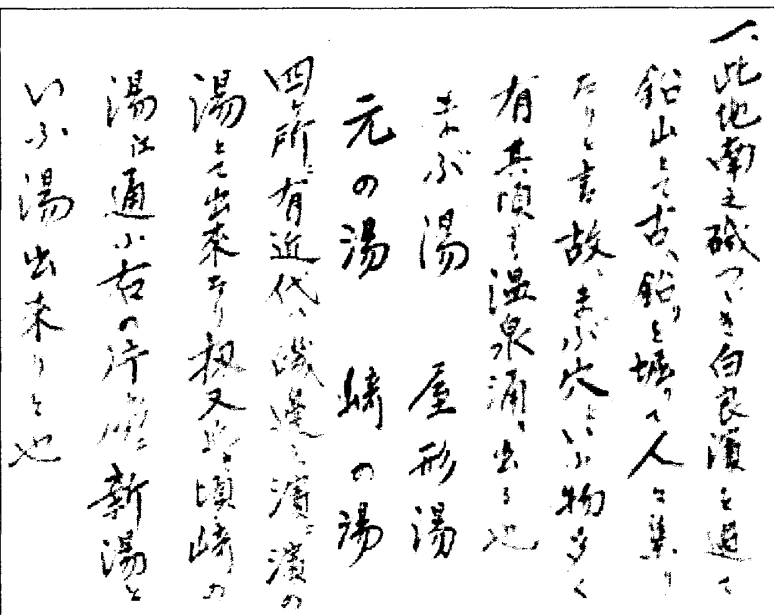 一、此地南之磯つゞき白良濱を過て
鉛山とて古へ鉛りを堀りて人々集り
たりと言故ニまぶ穴といふ物多く
有其頃より温泉涌き出る也
まぶ湯　屋形湯
元の湯　崎の湯
四ヶ所ニ有近代ハ磯邊之濱ニ濱の
湯とて出來たり扨又此頃崎の
湯江通ふ右の片原ニ新湯と
いふ湯出来りと也